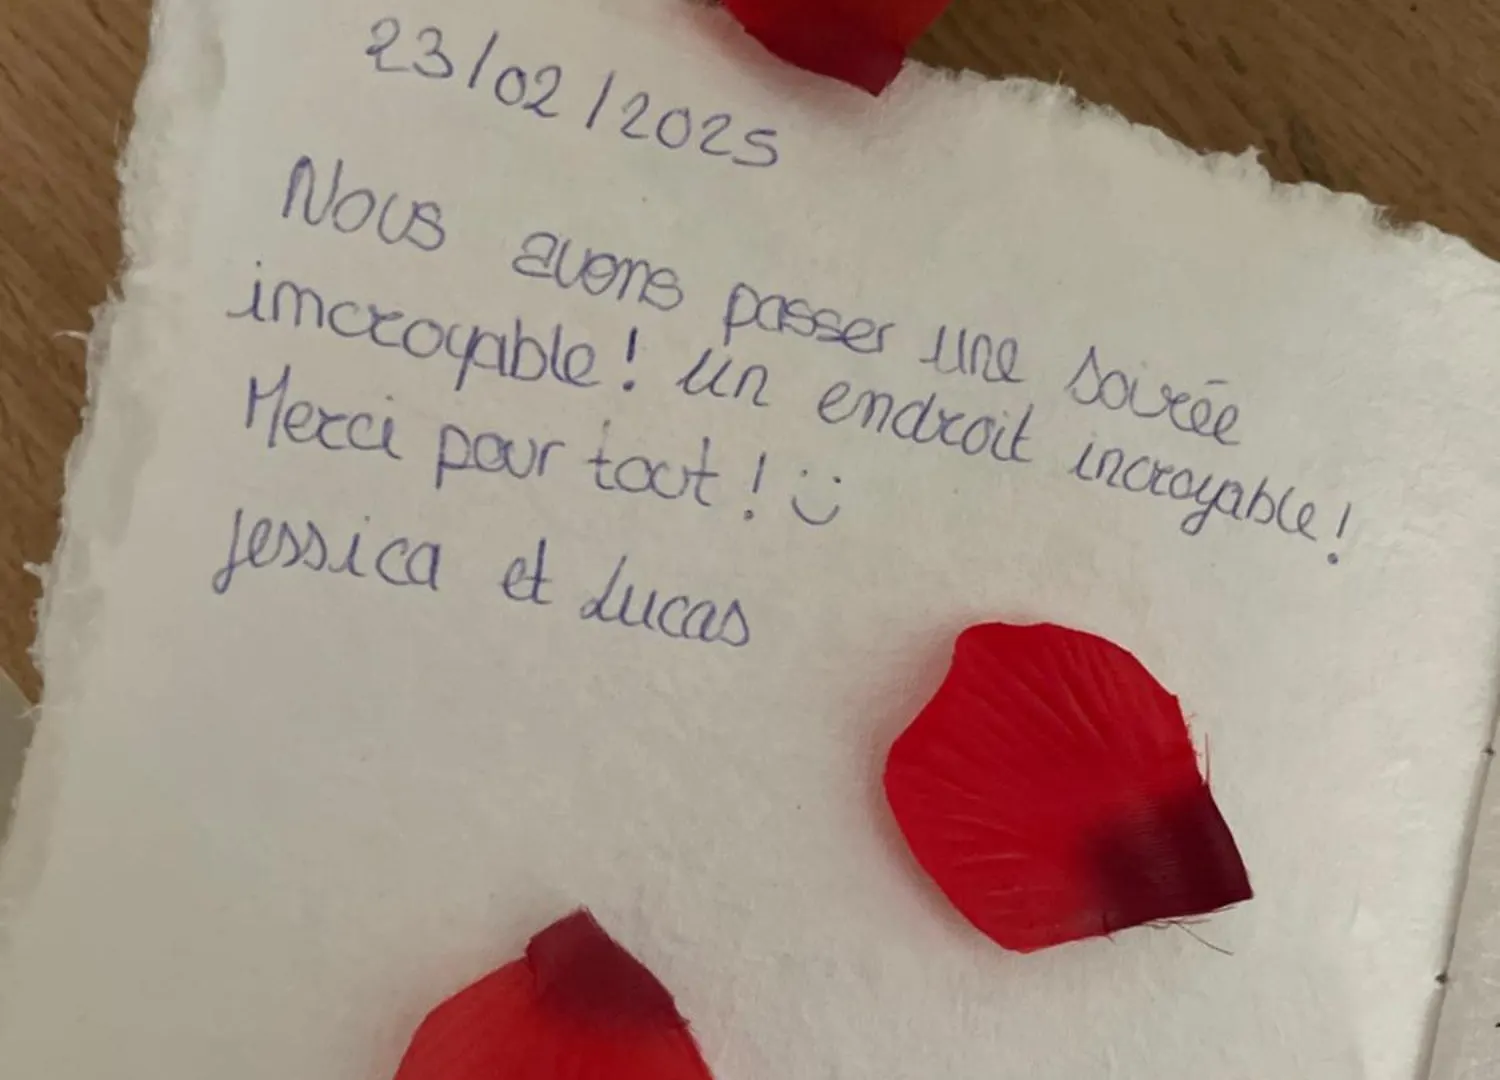 23/02/2025
Nous avons passer une soirée
incroyable! Un endroit incroyable!
Merci pour tout! :)
Jessica et Lucas